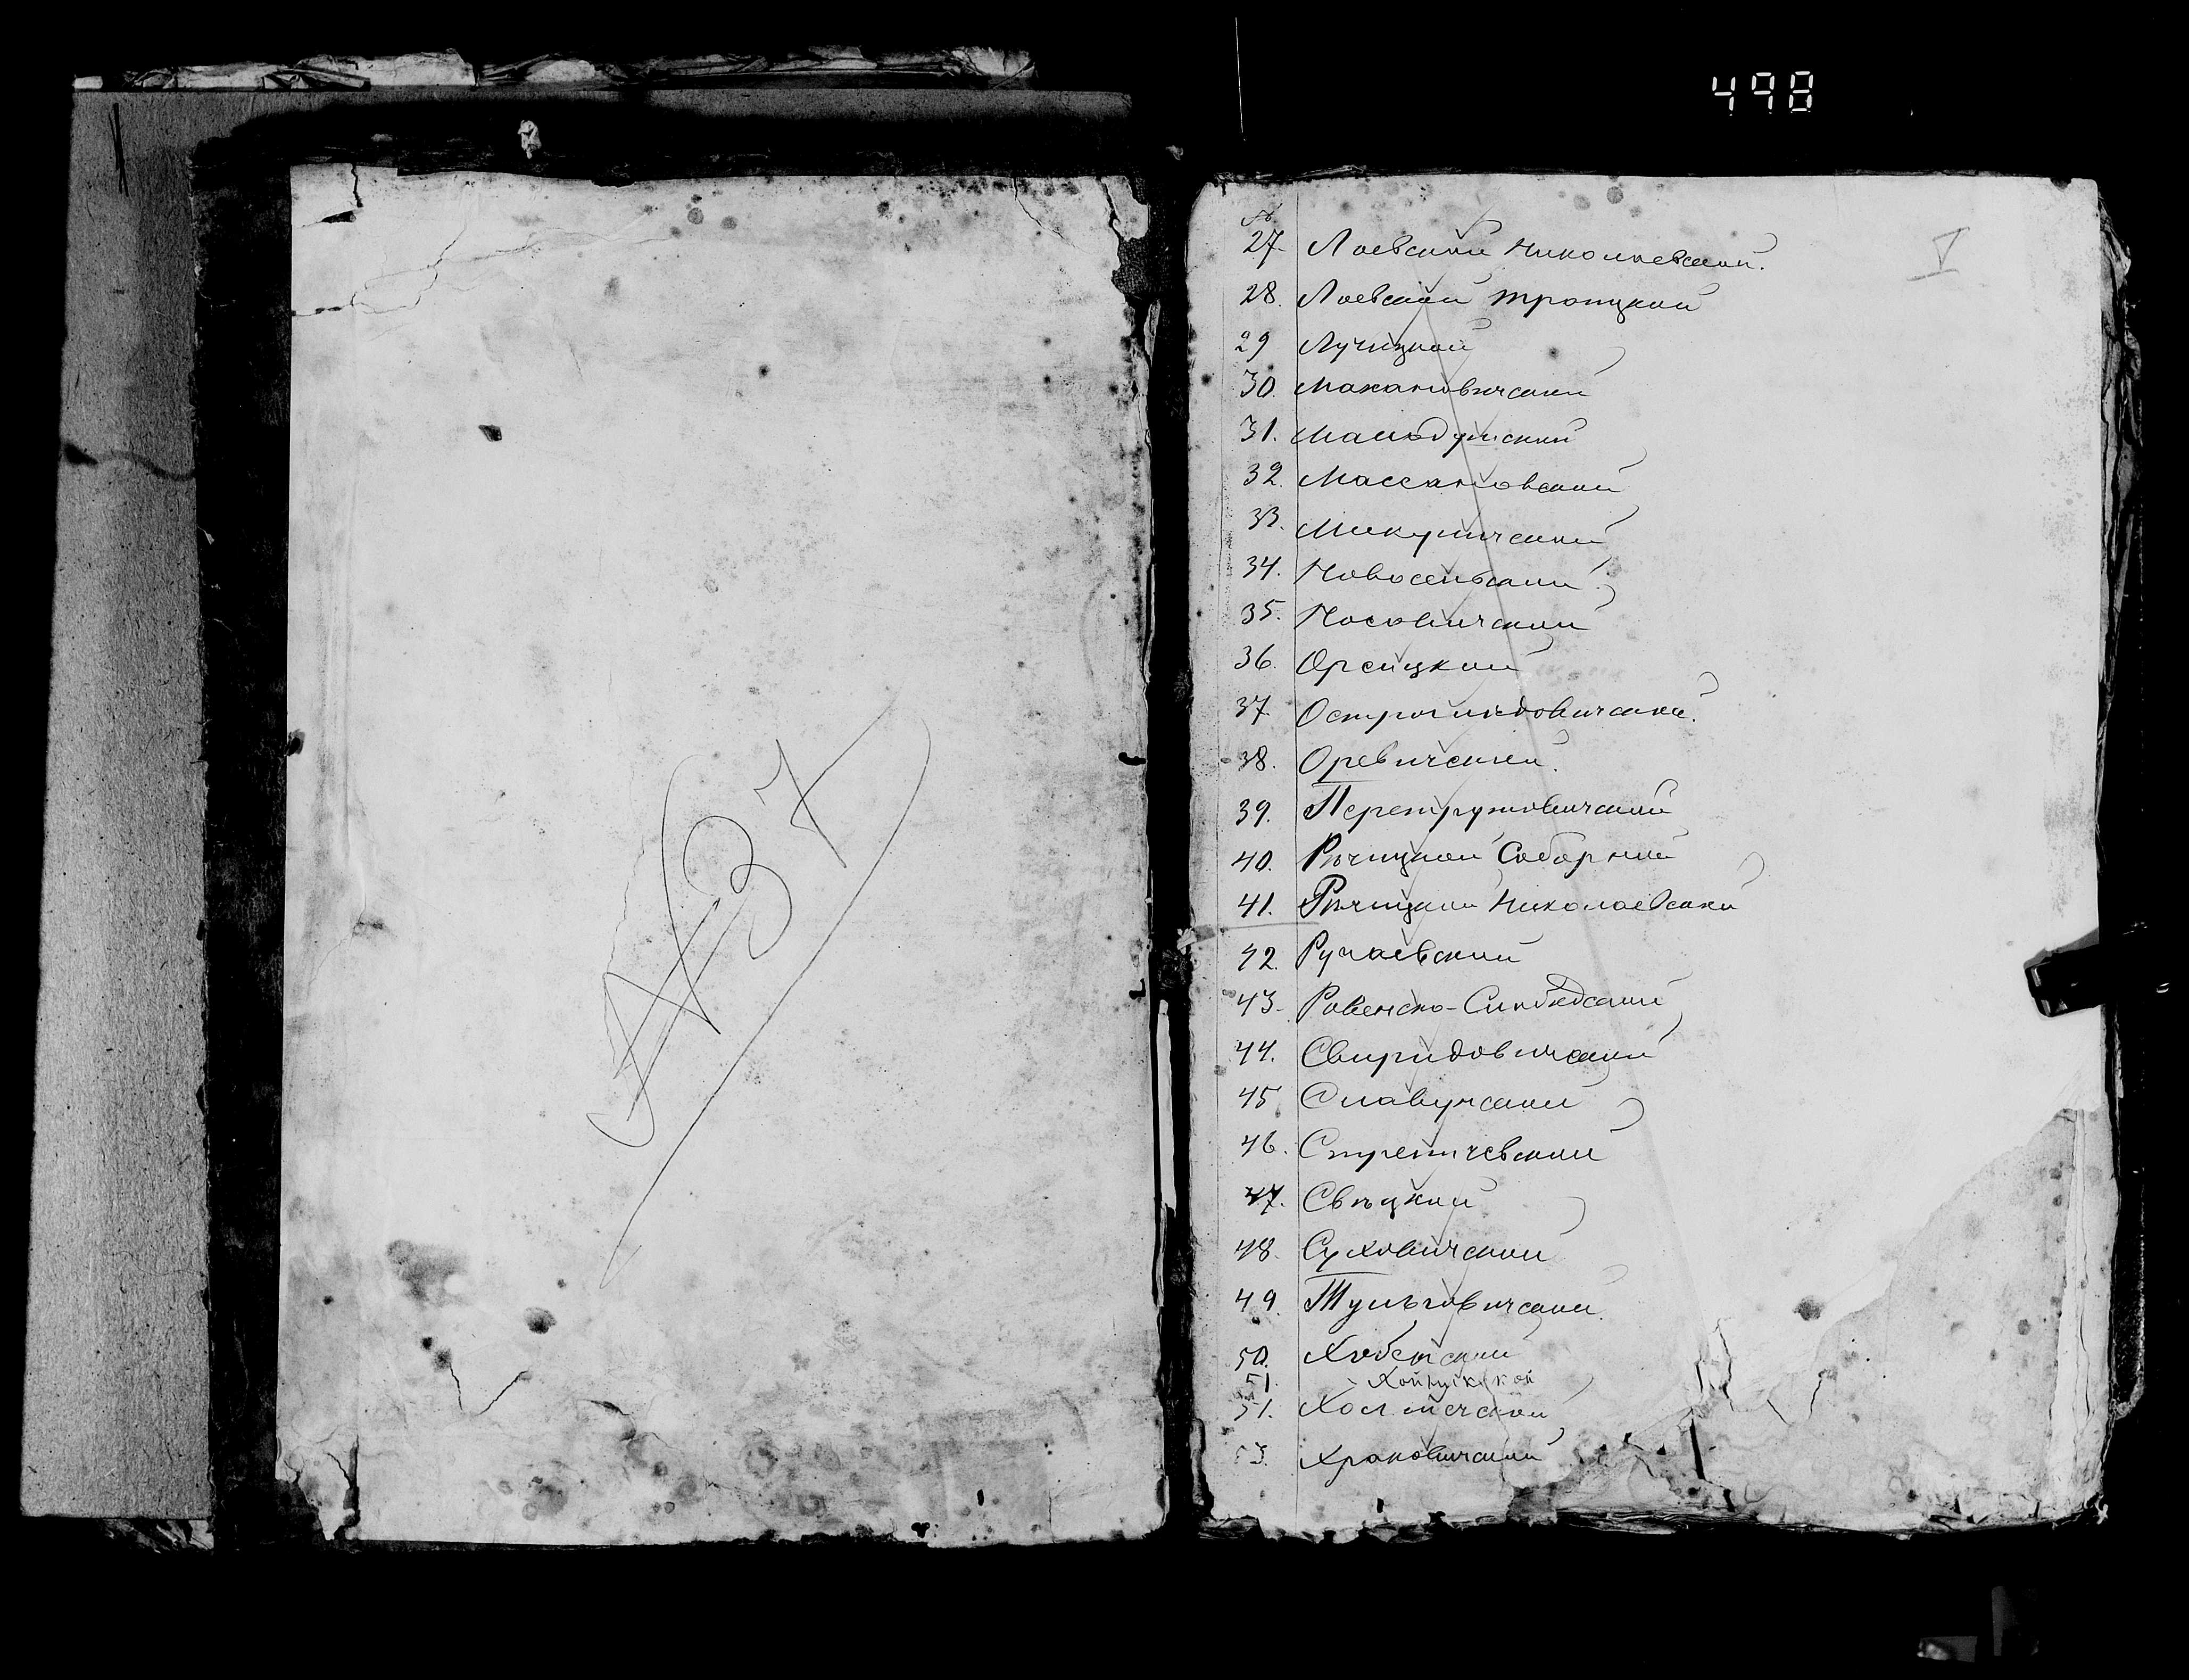 498
V
№
27. Лоевский Николаевский.
28. Лоевский Троицкий
29 Лучицкий
30. Макановичский
31. Малодушский
32. Массановский
33. Микуличский
34. Новосельский
35. Носовичский
36. Орсицкий
37. Остроглядовичский.
38. Оревичский.
39. Перетрутовичский
40. Речицкий Соборный
41. Речицкий Николаевский
42. Ручаевский
43. Ровенско-Слободский
44. Свиридовичский
45. Славучский
46. Стреличевский
47. Свѣцкий
48. Суховичский
49. Тульговичский.
50. Хобенский
51. Хойникской
51. Холмечский
53. Храковичский